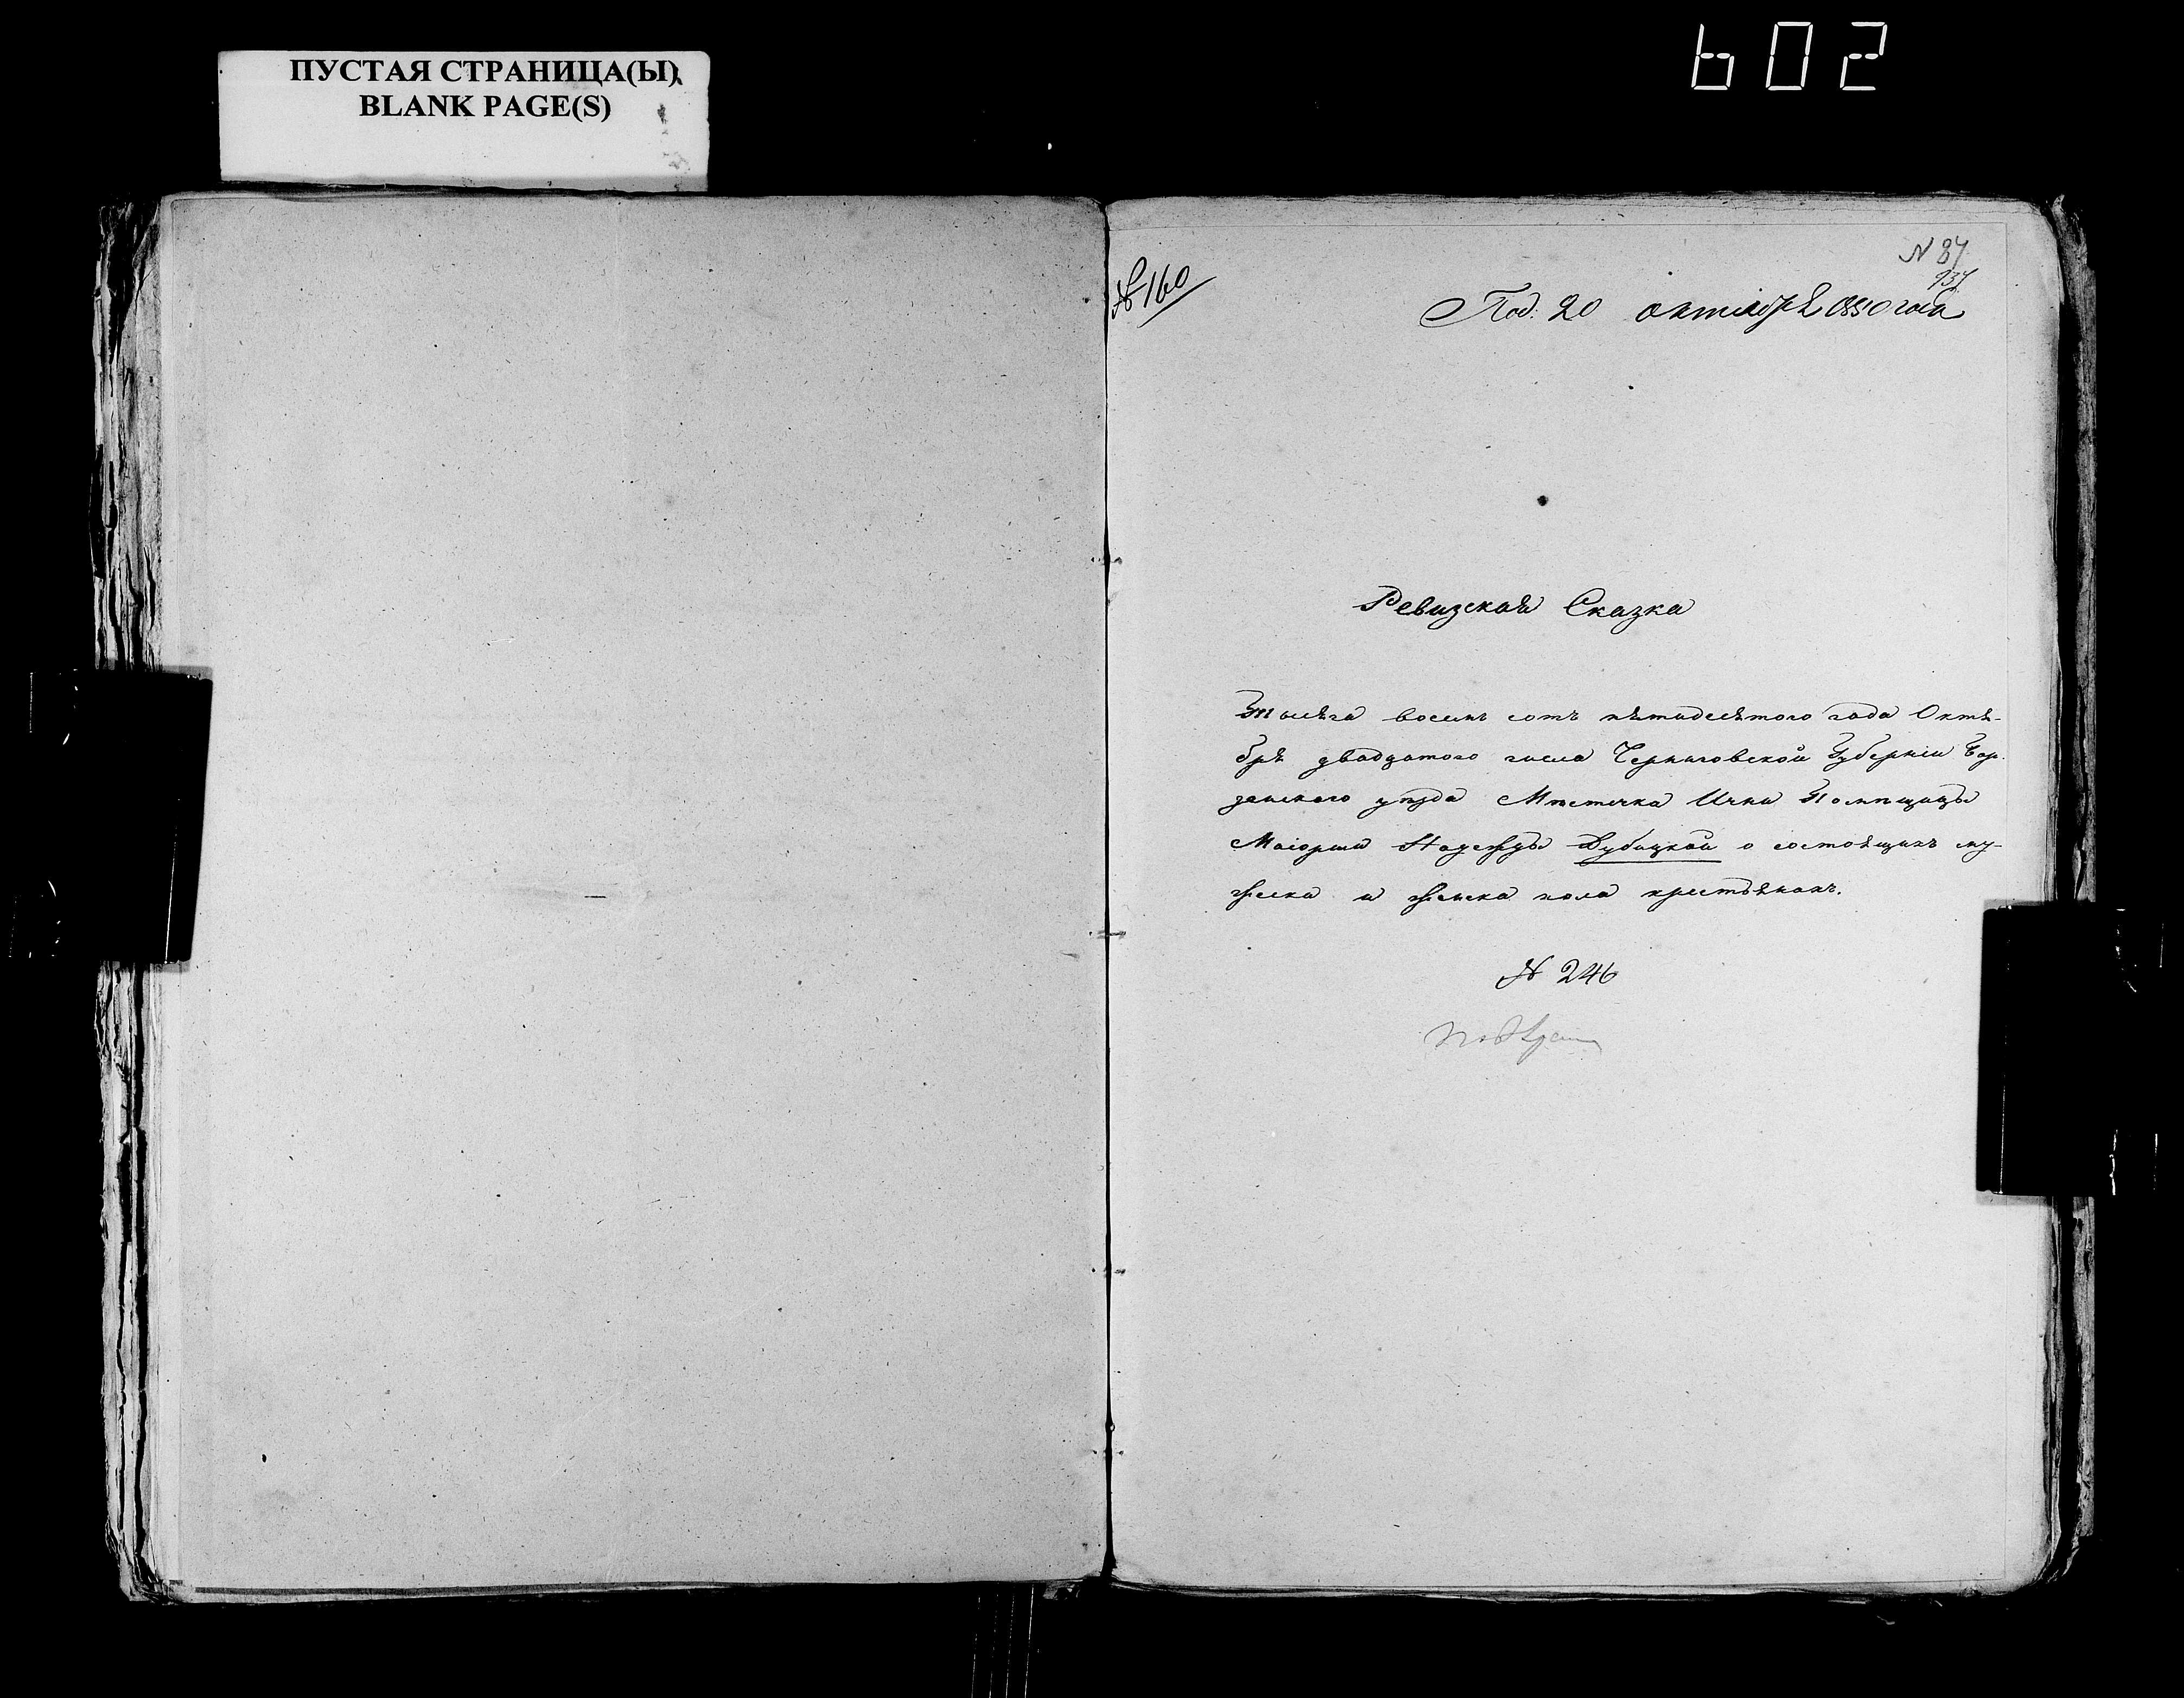 ПУСТАЯ СТРАНИЦА(Ы)
BLANK PAGE(S)
602
№ 160
N 87
137
Под: 20 октября 1850 года
Ревизская Сказка
Тысяча восемь сотъ пятидесятого года Октя-
бря двадцатого числа Черниговской Губерніи Бор-
занского уѣзда Мѣстечка Ични Помѣщицы
Маіорши Надежды Дубицкой о состоящихъ му-
жеска и женска пола крестьянахъ.
№ 246